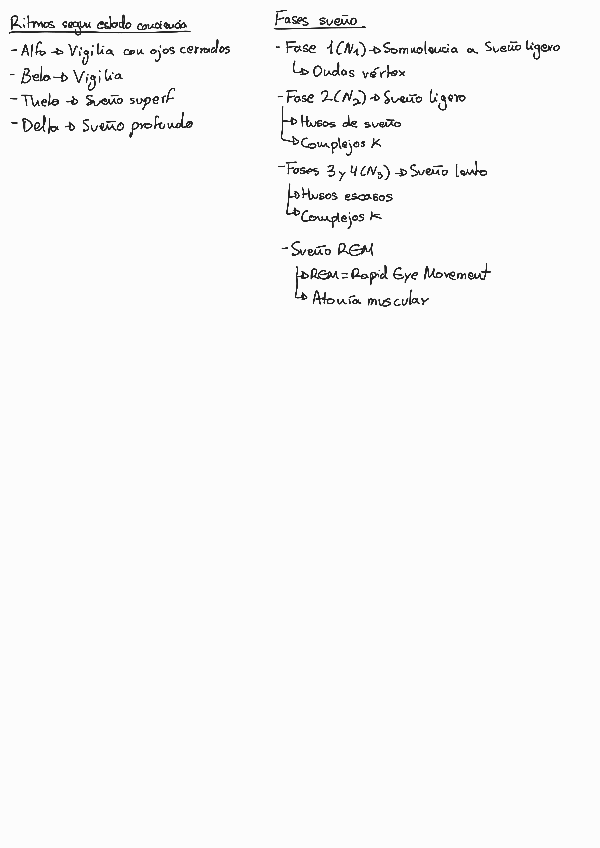 Ritmos segun estado conciencia
- Alfa → Vigilia con ojos cerrados
- Beta → Vigilia
- Theta → Sueño superf
- Delta → Sueño profundo
Fases sueño
- Fase 1 (N1) → Somnolencia a Sueño ligero
↳ Ondas vértex
- Fase 2 (N2) → Sueño ligero
↳ Husos de sueño
↳ Complejos K
- Fases 3 y 4 (N3) → Sueño lento
↳ Husos escasos
↳ Complejos K
- Sueño REM
↳ REM = Rapid Eye Movement
↳ Atonía muscular